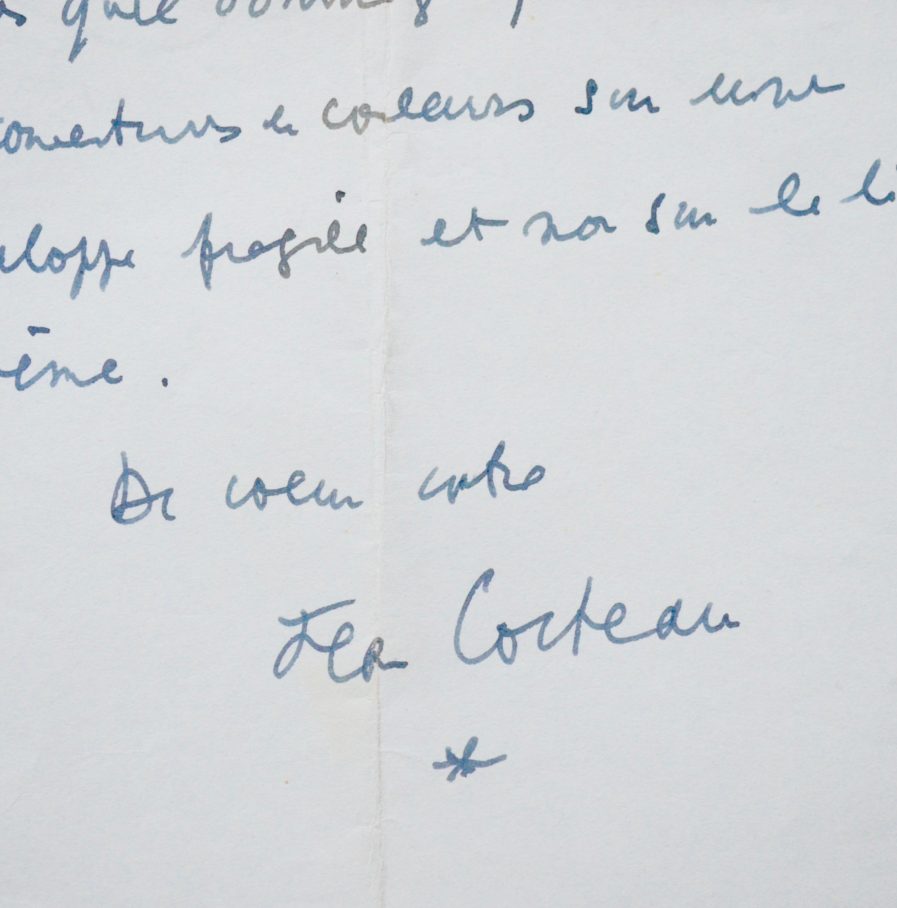 qu'il
couvertures en couleurs sur une
eloppe fragile et non sur le li
même.
De coeur votre
Jean Cocteau
*